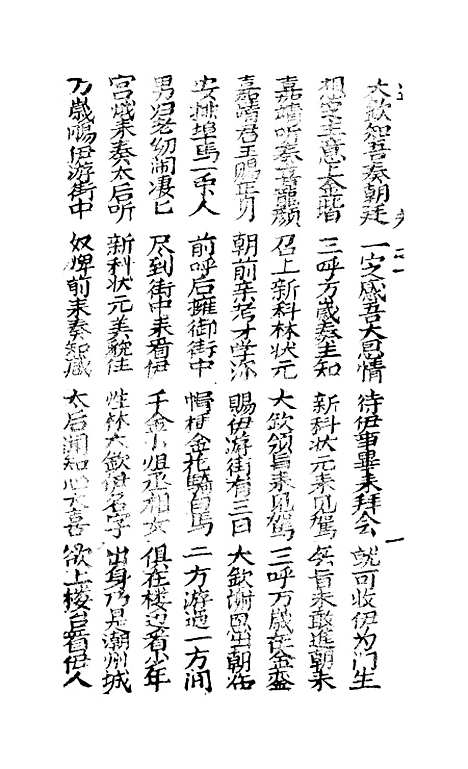 大欽知吾奏朝廷 一定感吾大恩情 待伊事畢来拜会 就可收伊为门生
想定主意上金阶 三呼万歳奏主知 新科状元来见驾 无旨未敢進朝来
嘉靖听奏喜龍顔 召上新科林状元 大欽领旨来见驾 三呼万歳在金銮
嘉靖君王賜平身 朝前亲考才学深 賜伊游街有三日 大欽謝恩出朝
安排埠馬一币人 前呼后擁御街中 帽插金花騎白馬 一方游過一方间
男妇老幼闹凄匕 尽到街中来看伊 千金小姐丞相女 俱在楼边看少年
宫娥来奏太后听 新科状元美貌佳 性林大欽伊名字 出身乃是潮州城
万歳賜伊游街中 奴婢前来奏知感 太后闻知心大喜 欲上楼台看伊人